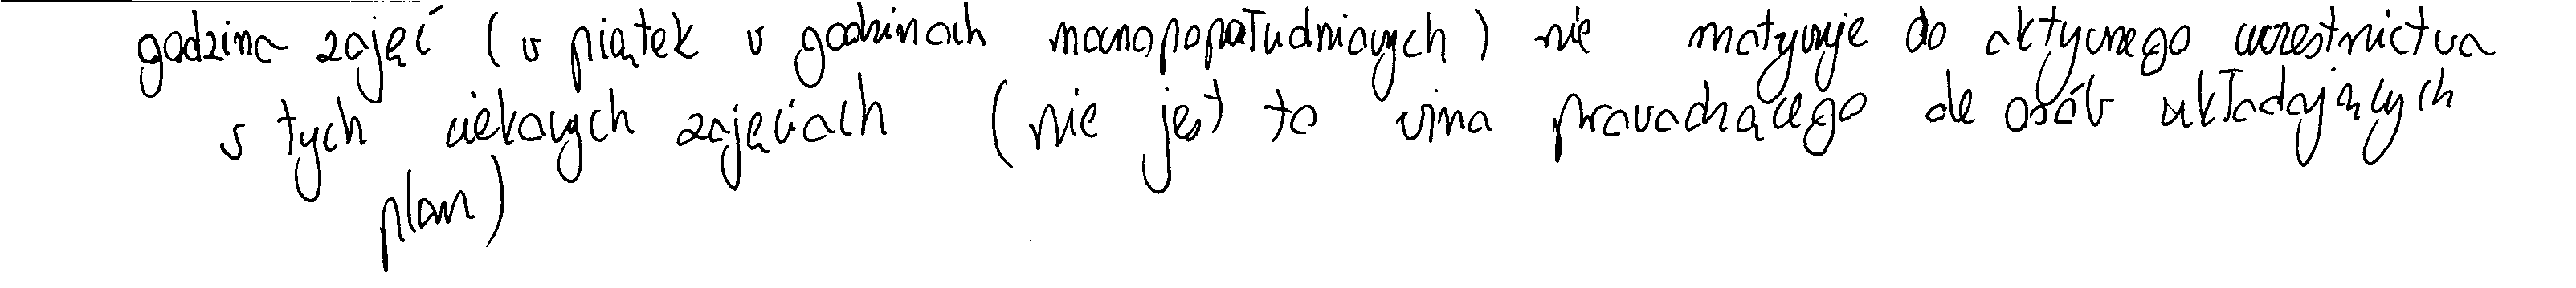 godzina zajęć (w piątek w godzinach mocnopopołudniowych) nie motywuje do aktywnego uczestnictwa
w tych ciekawych zajęciach (nie jest to wina prowadzącego ale osób układających
plan)